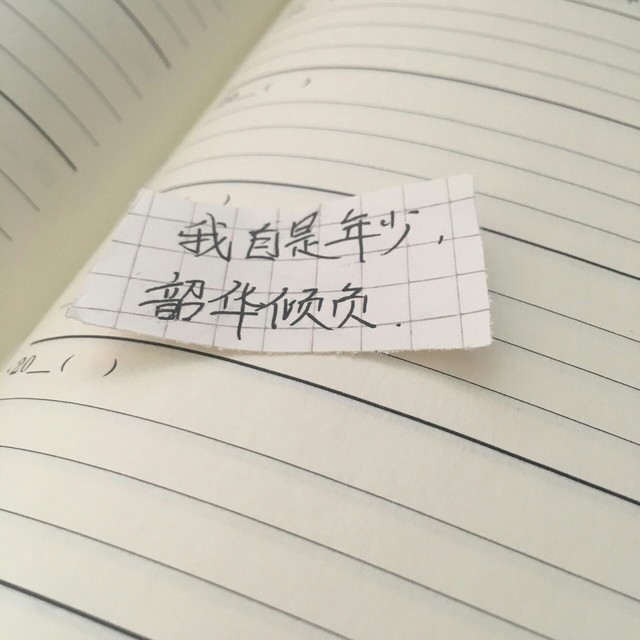 我自是年少,
韶华倾负.
20_( )